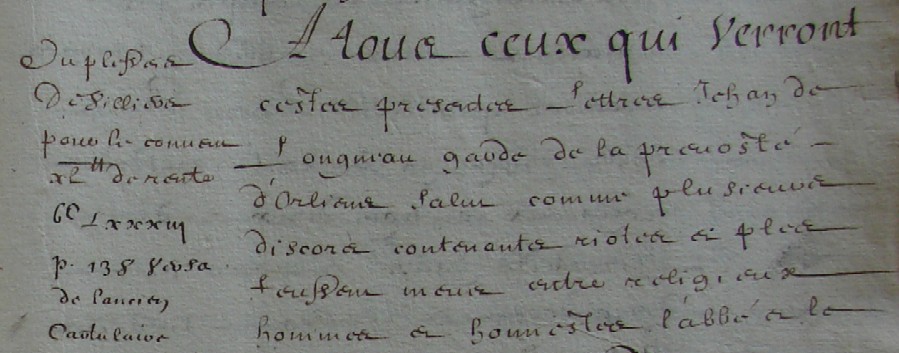 Du plessees
De villiers
pour le couvent
xl tt de rente
CC Lxxxiij
p. 138 versa
de l'ancien
Cartulaire
A tous ceux qui Verront
cestes presentes Lettres Jehan de
Longueau garde de la prevosté
d'Orliens salut comme plusieurs
discors contentens riotes et ples
feussent meuz entre religieux
hommes et honnestes l'abbé et le